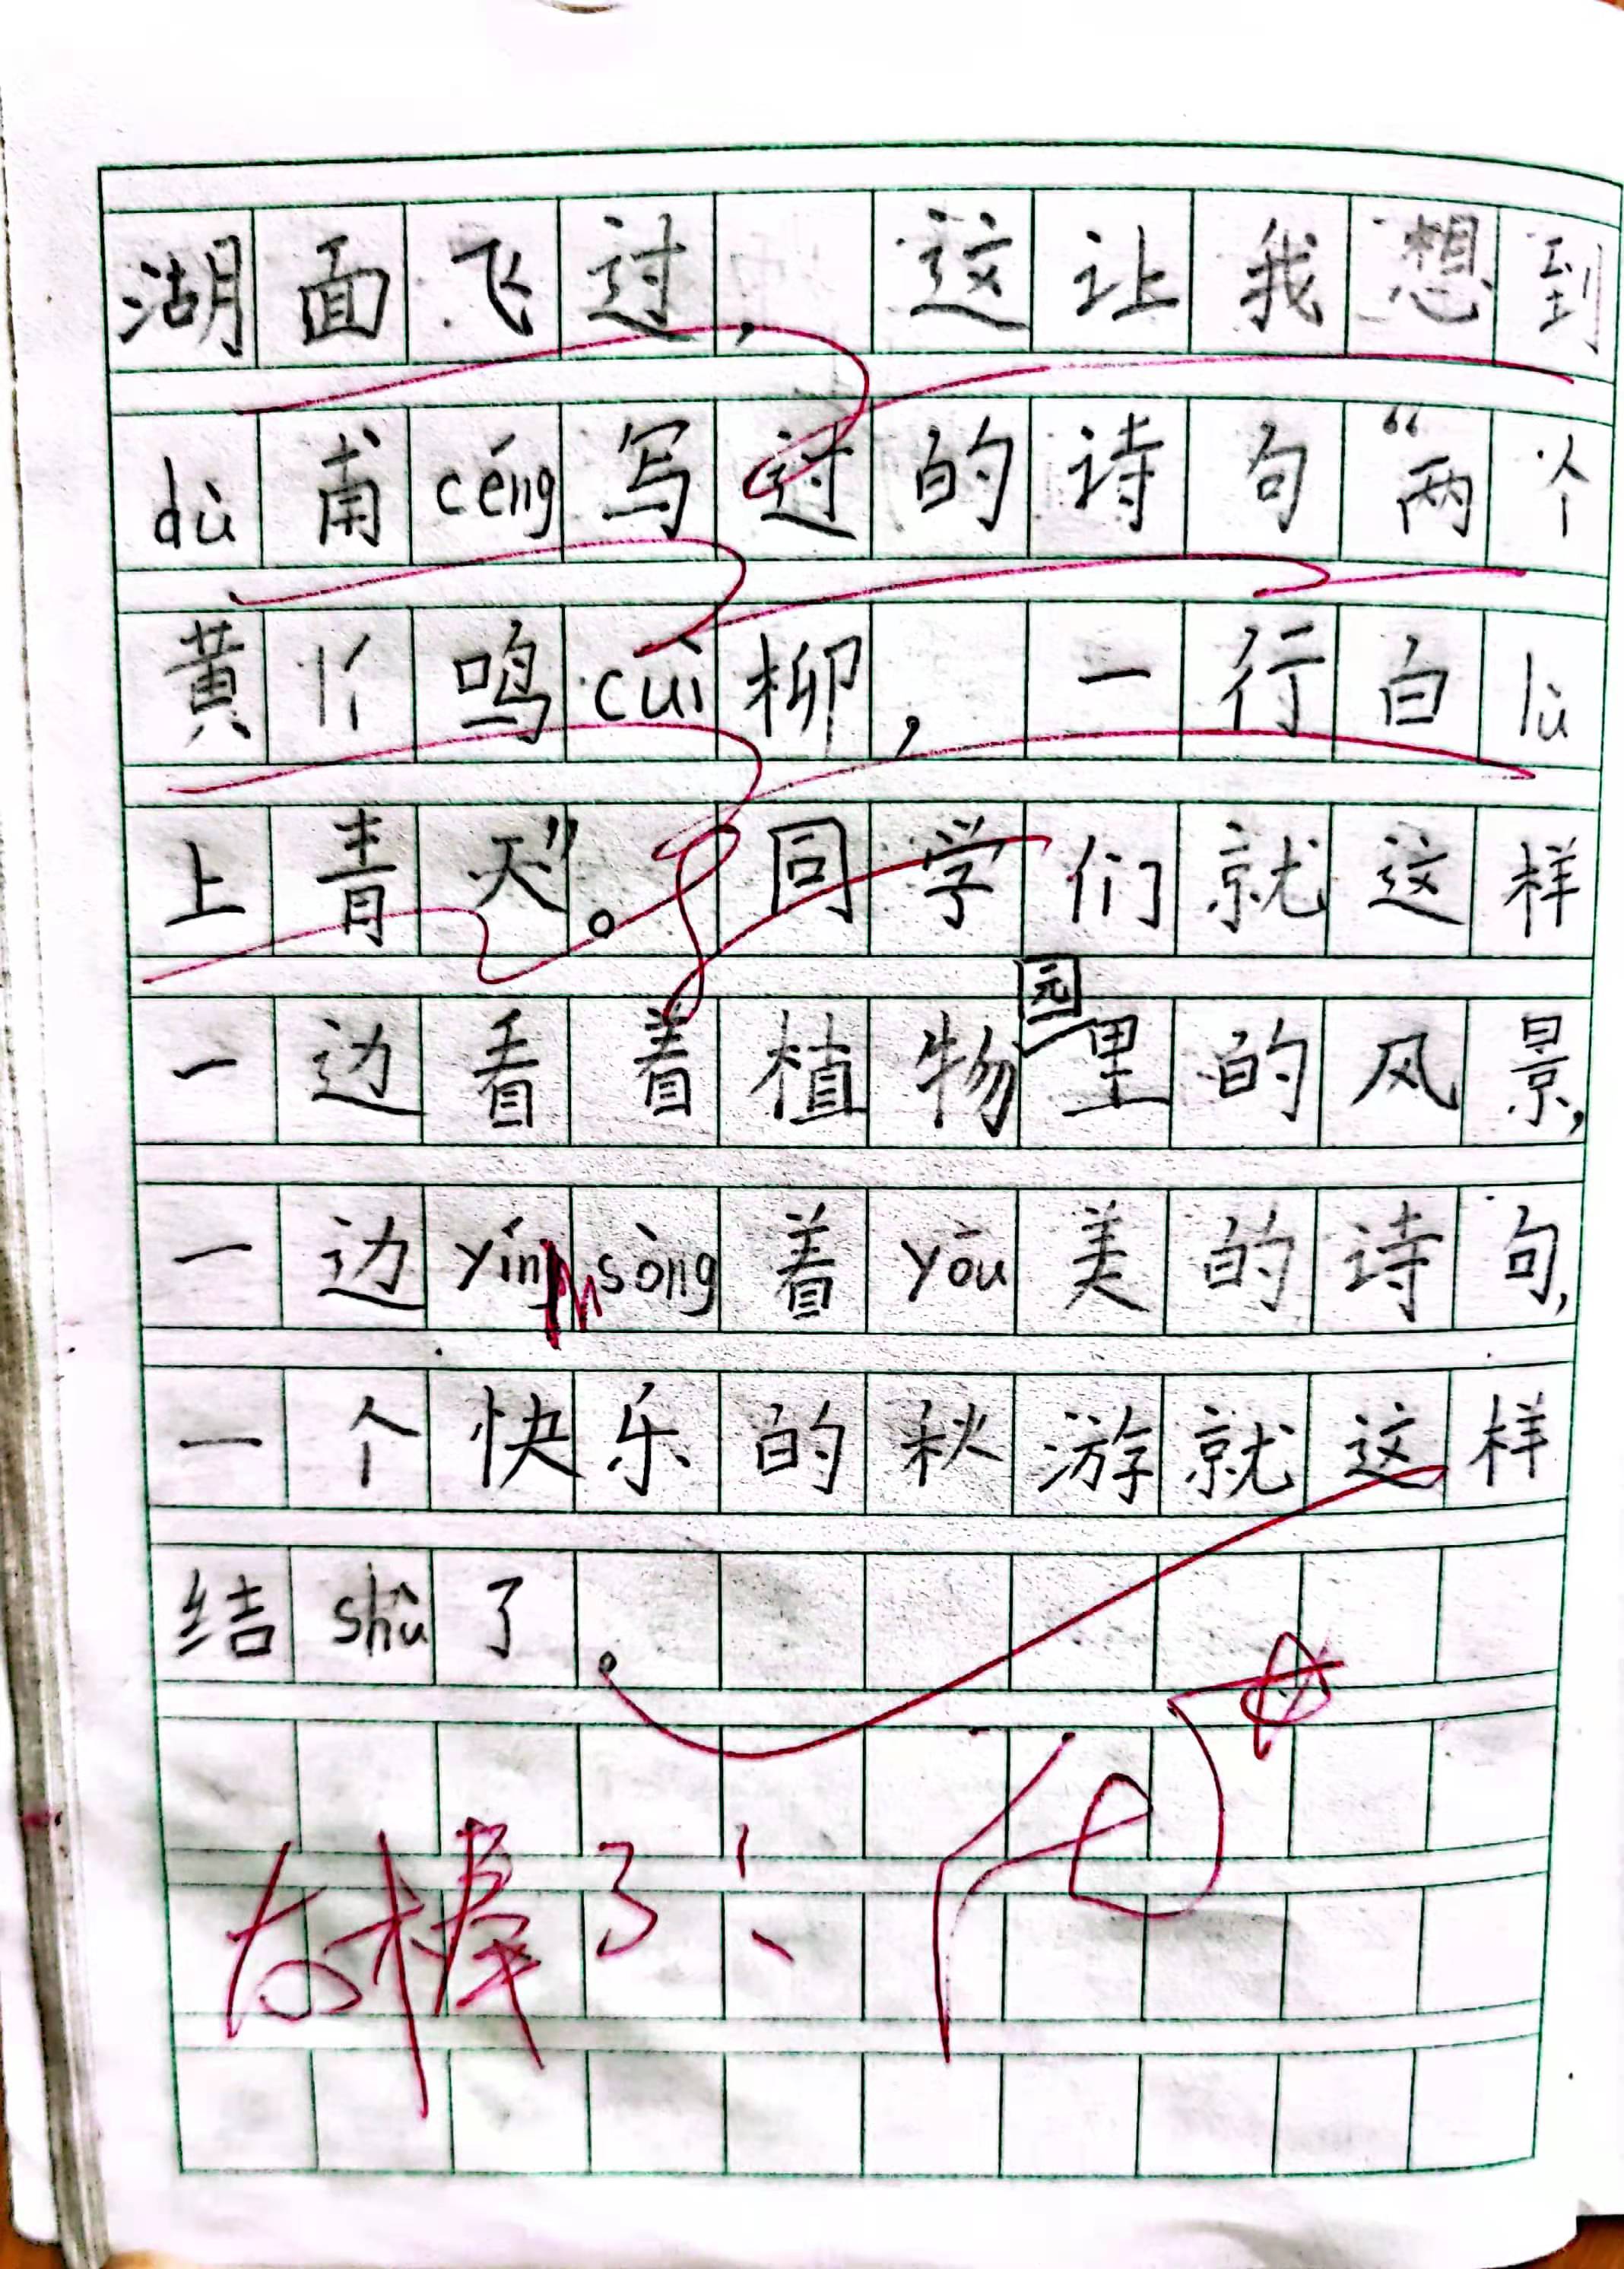 湖面飞过，这让我想到
dù甫céng写过的诗句“两个
黄鸣cuì柳，一行白lù
上青天”。同学们就这样
一边看着植物园里的风景，
一边yínsòng着yōu美的诗句，
一个快乐的秋游就这样
结shù了。
太棒了！优